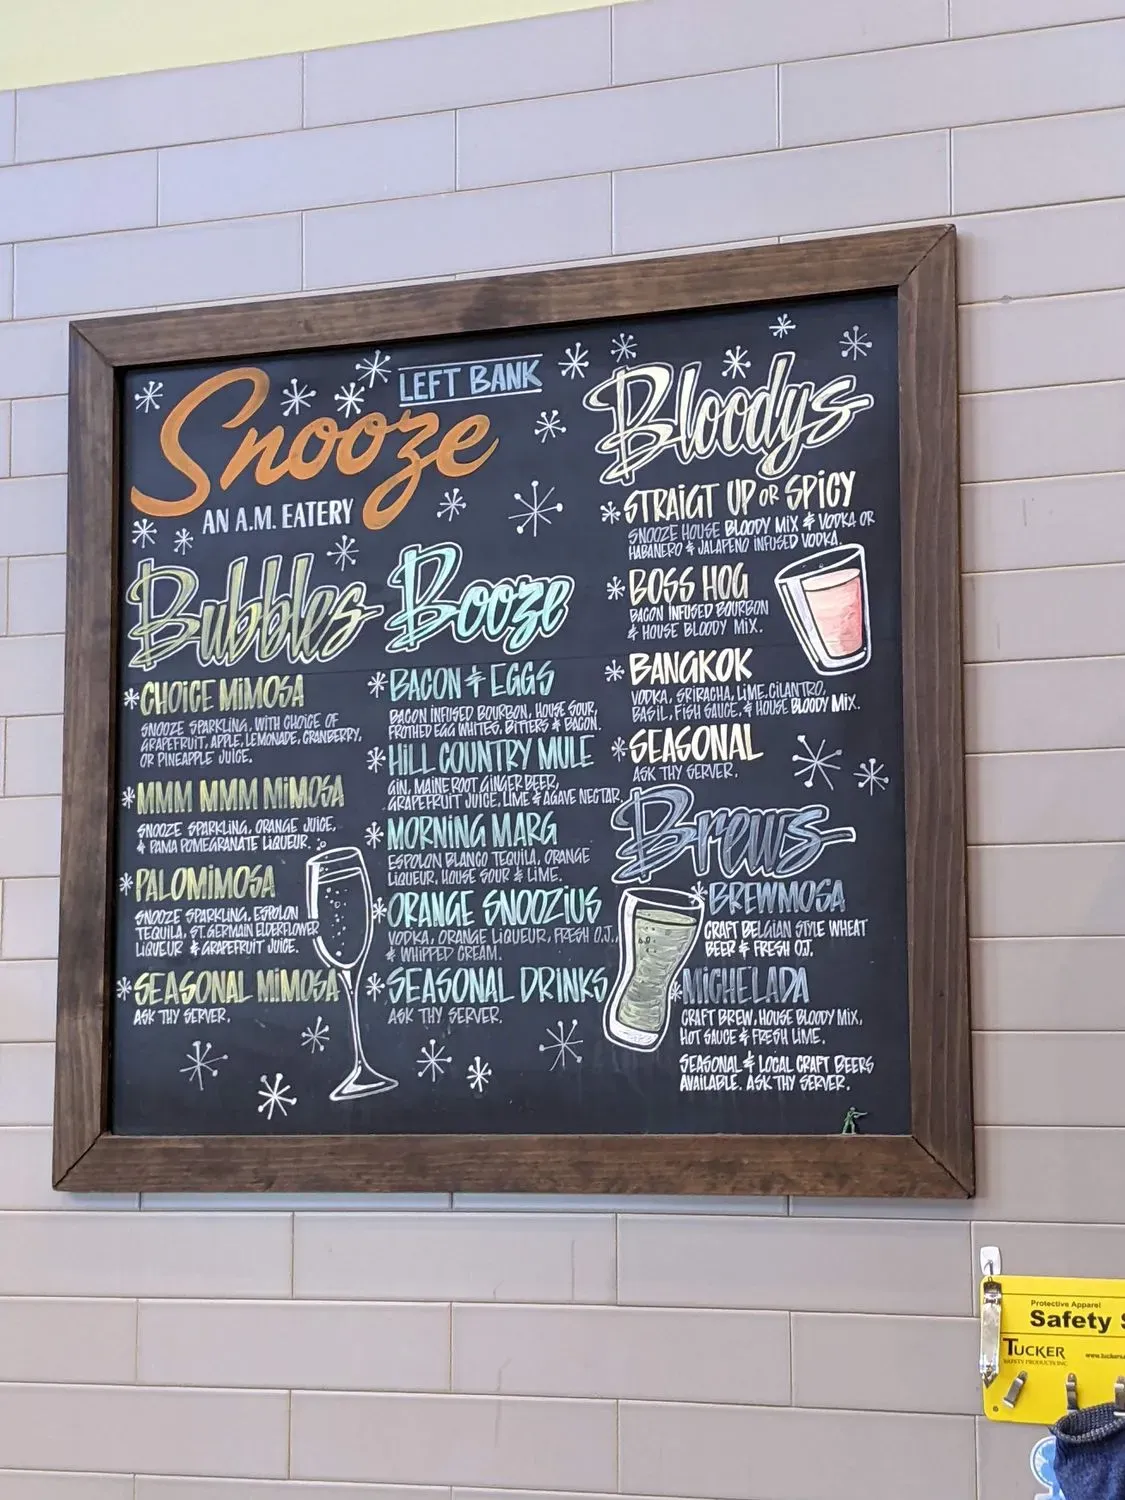 LEFT BANK
Snooze
AN A.M. EATERY
Bubbles
*CHOICE MIMOSA
SNOOZE SPARKLING, WITH CHOICE OF
GRAPEFRUIT, APPLE, LEMONADE, CRANBERRY,
OR PINEAPPLE JUICE.
*MMM MMM MIMOSA
SNOOZE SPARKLING, ORANGE JUICE,
& PAMA POMEGRANATE LIQUEUR.
*PALOMIMOSA
SNOOZE SPARKLING, ESPOLON
TEQUILA, ST. GERMAIN ELDERFLOWER
LIQUEUR & GRAPEFRUIT JUICE.
*SEASONAL MIMOSA
ASK THY SERVER.
Booze
*BACON & EGGS
BACON INFUSED BOURBON, HOUSE SOUR,
FROTHED EGG WHITES, BITTERS & BACON.
*HILL COUNTRY MULE
GIN, MAINE ROOT GINGER BEER,
GRAPEFRUIT JUICE, LIME & AGAVE NECTAR.
*MORNING MARG
ESPOLON BLANCO TEQUILA, ORANGE
LIQUEUR, HOUSE SOUR & LIME.
*ORANGE SNOOZIUS
VODKA, ORANGE LIQUEUR, FRESH O.J.,
& WHIPPED CREAM.
*SEASONAL DRINKS
ASK THY SERVER.
Bloodys
*STRAIGT UP OR SPICY
SNOOZE HOUSE BLOODY MIX & VODKA OR
HABANERO & JALAPENO INFUSED VODKA.
*BOSS HOG
BACON INFUSED BOURBON
& HOUSE BLOODY MIX.
*BANGKOK
VODKA, SRIRACHA, LIME, CILANTRO,
BASIL, FISH SAUCE, & HOUSE BLOODY MIX.
*SEASONAL
ASK THY SERVER.
Brews
*BREWMOSA
CRAFT BELGIAN STYLE WHEAT
BEER & FRESH O.J.
*MICHELADA
CRAFT BREW, HOUSE BLOODY MIX,
HOT SAUCE & FRESH LIME.
SEASONAL & LOCAL CRAFT BEERS
AVAILABLE. ASK THY SERVER.
Protective Apparel
Safety
TUCKER
SAFETY PRODUCTS INC.